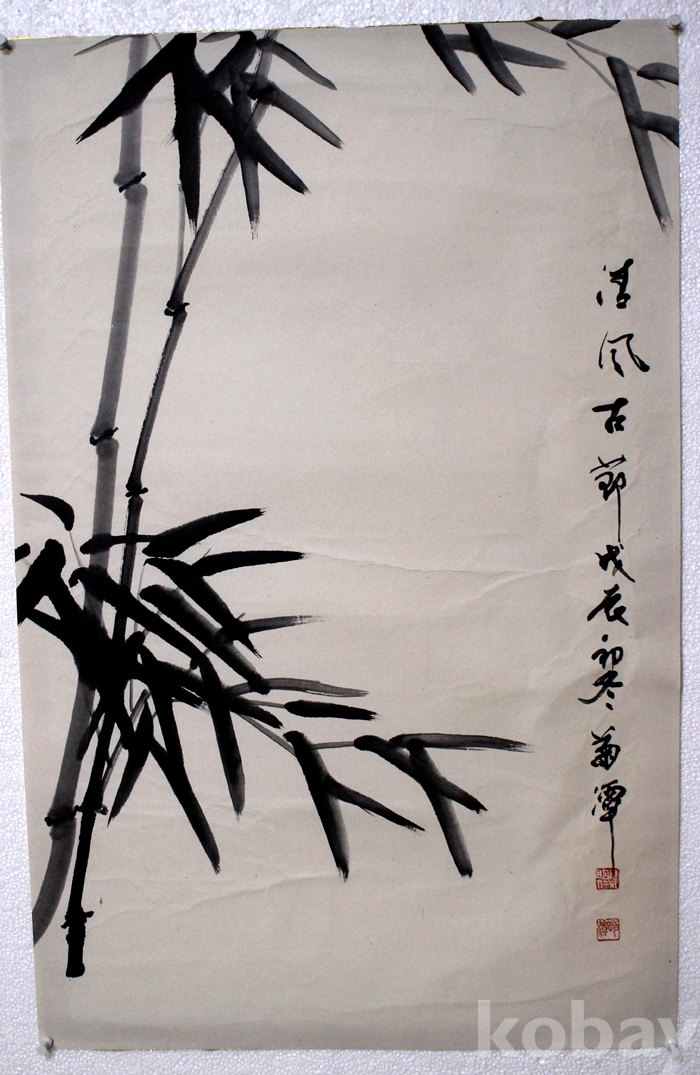 清風古節戊辰初冬菊潭
kobay